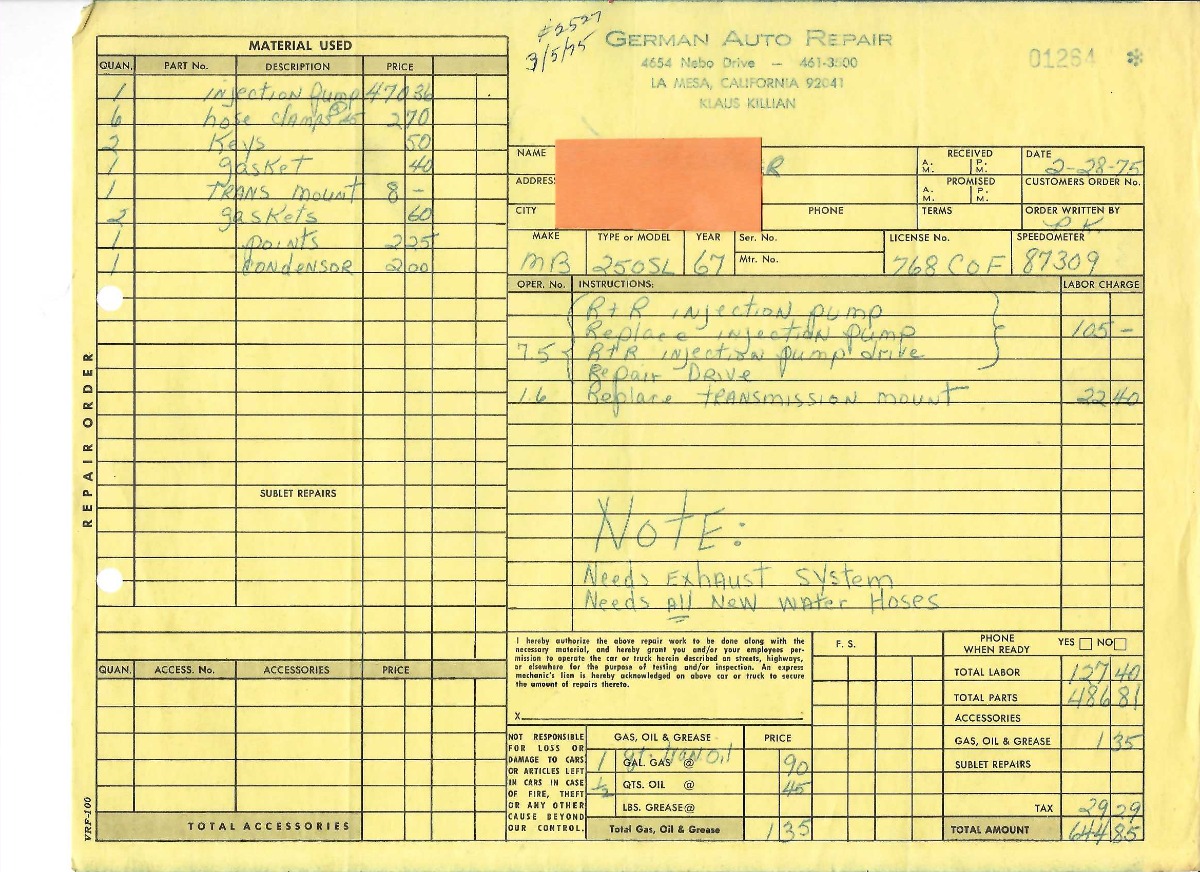 #2527
3/5/75
GERMAN AUTO REPAIR
4654 Nebo Drive — 461-3500
LA MESA, CALIFORNIA 92041
KLAUS KILLIAN
01264 *
REPAIR ORDER
MATERIAL USED
QUAN. PART No. DESCRIPTION PRICE
1 injection pump 470 36
6 hose clamps @ 45 2 70
2 Keys 50
1 gasket 40
1 TRANS mount 8 -
2 gaskets 60
1 points 2 25
1 CONDENSOR 2 00
SUBLET REPAIRS
QUAN. ACCESS. No. ACCESSORIES PRICE
TOTAL ACCESSORIES
VRF-100
NAME R
ADDRES
CITY PHONE
RECEIVED A. M. P. M.
PROMISED A. M. P. M.
TERMS
DATE 2-28-75
CUSTOMERS ORDER No.
ORDER WRITTEN BY
MAKE TYPE or MODEL YEAR Ser. No. LICENSE No. SPEEDOMETER
Mtr. No.
MB 250SL 67 768 COF 87309
OPER. No. INSTRUCTIONS: LABOR CHARGE
R+R injection pump
Replace injection pump 105 -
7.5 R+R injection pump drive
Repair DRIVE
1.6 Replace TRANSMISSION mount 22 40
NOTE:
Needs Exhaust System
Needs All New Water Hoses
I hereby authorize the above repair work to be done along with the
necessary material, and hereby grant you and/or your employees per-
mission to operate the car or truck herein described on streets, highways,
or elsewhere for the purpose of testing and/or inspection. An express
mechanic's lien is hereby acknowledged on above car or truck to secure
the amount of repairs thereto.
X
NOT RESPONSIBLE
FOR LOSS OR
DAMAGE TO CARS
OR ARTICLES LEFT
IN CARS IN CASE
OF FIRE, THEFT
OR ANY OTHER
CAUSE BEYOND
OUR CONTROL.
GAS, OIL & GREASE PRICE
1 GAL. GAS @ qt. Oil 90
½ QTS. OIL @ 45
LBS. GREASE @
Total Gas, Oil & Grease 1 35
F. S.
PHONE WHEN READY YES NO
TOTAL LABOR 127 40
TOTAL PARTS 486 81
ACCESSORIES
GAS, OIL & GREASE 1 35
SUBLET REPAIRS
TAX 29 29
TOTAL AMOUNT 644 85